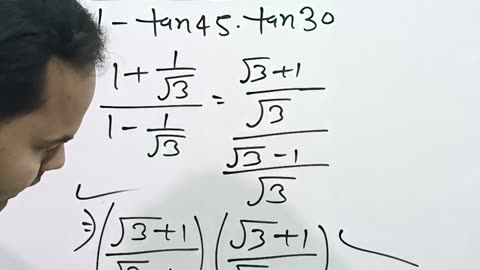 1 - tan45.tan30
(1 + 1/√3)/(1 - 1/√3) = ((√3+1)/√3)/((√3-1)/√3)
⇒ (√3+1) (√3+1)